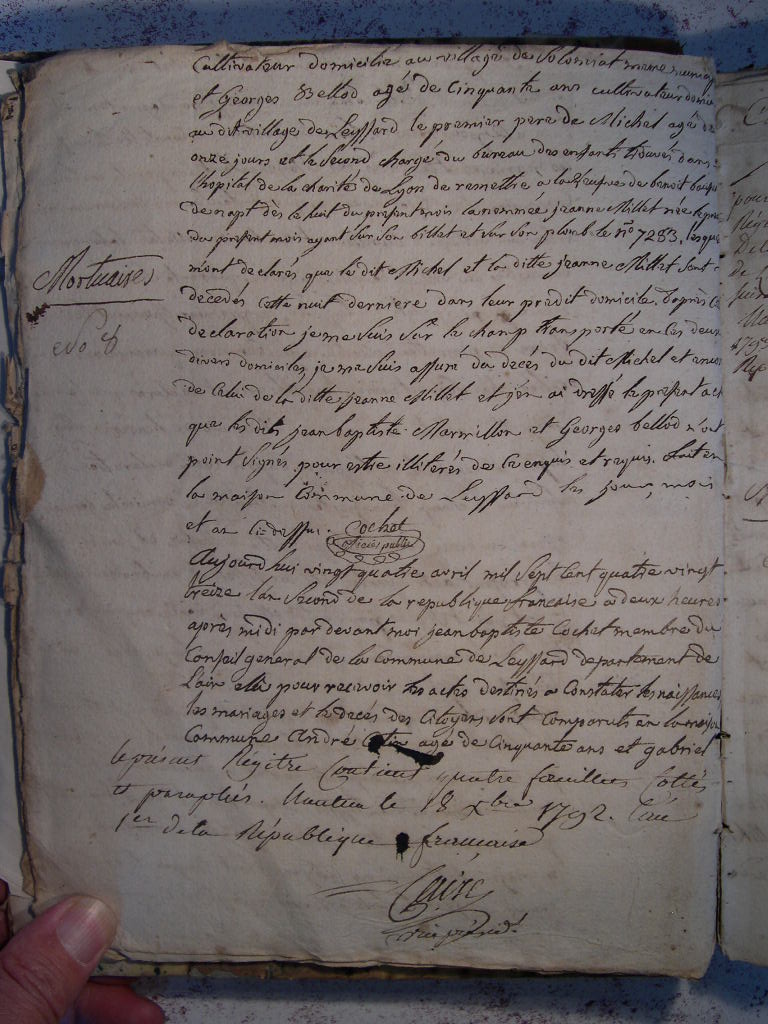 Cultivateur domicilié au village de Solomiat meme
et Georges Bellod agé de Cinquante ans cultivateur
au dit village de Leyssard le premier pere de Michel agé de
onze jours et le Second chargé du bureau des enfants trouves dans
l'hopital de la charité de Lyon de remettre à la de benoit
de napt dès le huit du present mois la nommée jeanne Millet née le
du present mois ayant sur son billet et sur son plomb le nº 7283,
mont declarés que le dit Michel et la ditte jeanne Millet sont
decedés cette nuit derniere dans leur predit domicile. daprès
declaration je me suis sur le champ transporté en ces deux
divers domiciles, je me suis assuré du decès du dit Michel et
de Celui de la ditte jeanne Millet et j'en ai dressé le present
que les dits jean baptiste Marmillon et Georges bellod n'ont
point signés pour estre illiterés de enquis et requis. fait en
la maison Commune de Leyssard les jour, mois
et an ci dessus. Cochet
officier public
Mortuaires
Aujourd'hui vingt quatre avril mil Sept Cent quatre vingt
treize l'an Second de la republique francaise a deux heures
après midi par devant moi jean baptiste Cochet membre du
Conseil general de la Commune de Leyssard departement de
Lain elu pour recevoir les actes destinés a Constater les naissances
les mariages et les decés des Citoyens sont comparuts en la maison
Commune André agé de Cinquante ans et gabriel
le présent Régitre Contient quatre feuillets Cottés
et paraphés. Nantua le 18 Xbre 1792. l'an
1er de la République francaise